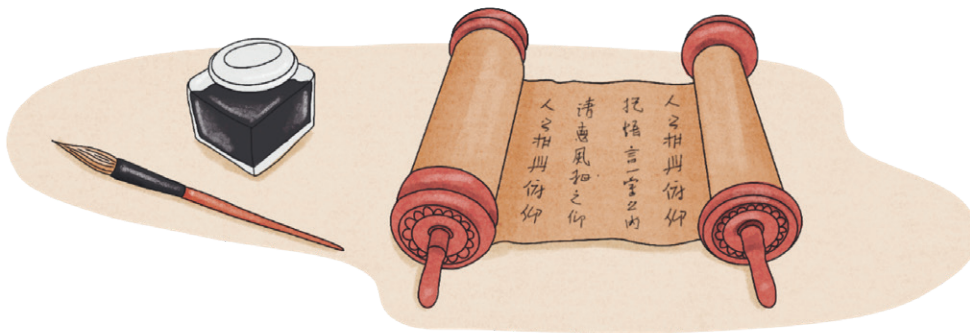 人之相與俯仰
抱悟言一室之内
清惠風和之仰
人之相與俯仰